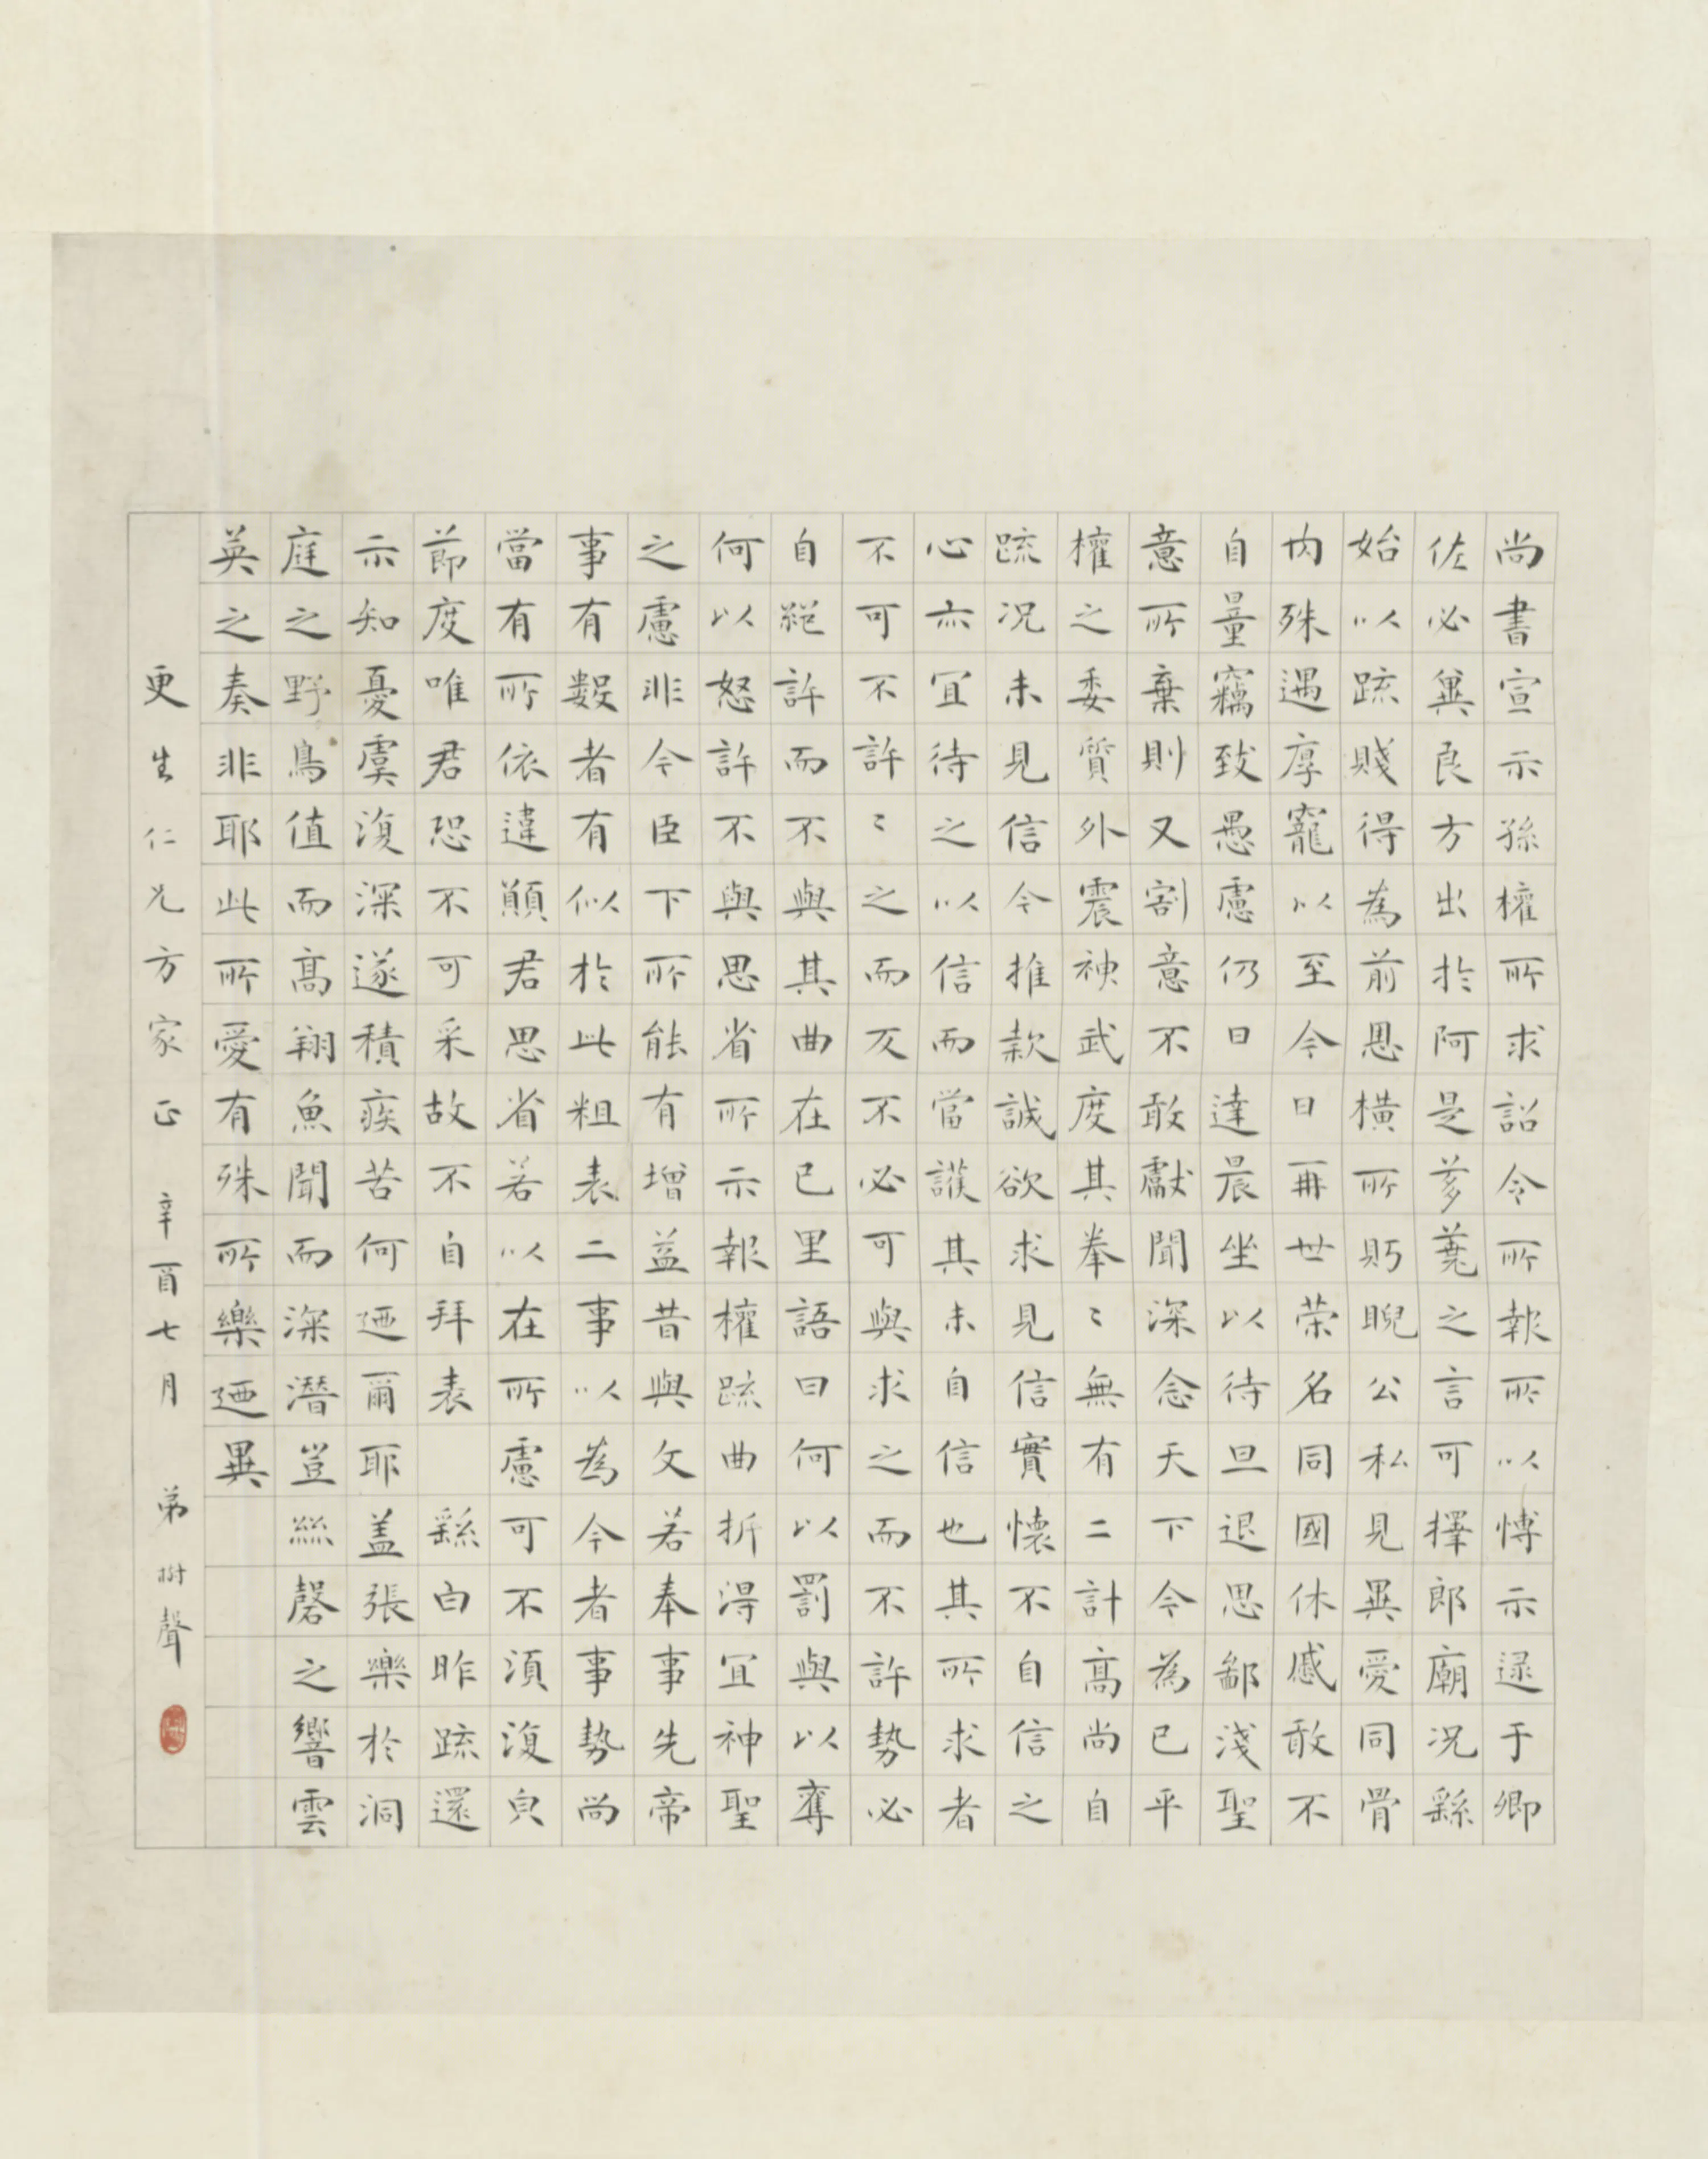 尚書宣示孫權所求詔令所報所以博示逯于卿
佐必冀良方出於阿是芻蕘之言可擇郎廟況繇
始以疏賤得為前恩橫所眄睨公私見異愛同骨
內殊遇厚寵以至今日再世荣名同國休慼敢不
自量竊致愚慮仍日達晨坐以待旦退思鄙淺聖
意所棄則又割意不敢獻聞深念天下今為已平
權之委質外震神武度其拳〻無有二計高尚自
疏況未見信今推款誠欲求見信實懷不自信之
心亦宜待之以信而當護其未自信也其所求者
不可不許〻之而反不必可與求之而不許勢必
自絕許而不與其曲在已里語曰何以罰與以奪
何以怒許不與思省所示報權疏曲折得宜神聖
之慮非今臣下所能有增益昔與文若奉事先帝
事有數者有似於此粗表二事以為今者事勢尚
當有所依違願君思省若以在所慮可不須復皃
節度唯君恐不可采故不自拜表 繇白昨疏還
示知憂虞復深遂積疾苦何迺爾耶盖張樂於洞
庭之野鳥值而高翔魚聞而深潛豈絲磬之響雲
英之奏非耶此所愛有殊所樂迺異
更生仁兄方家正 辛酉七月 弟樹聲